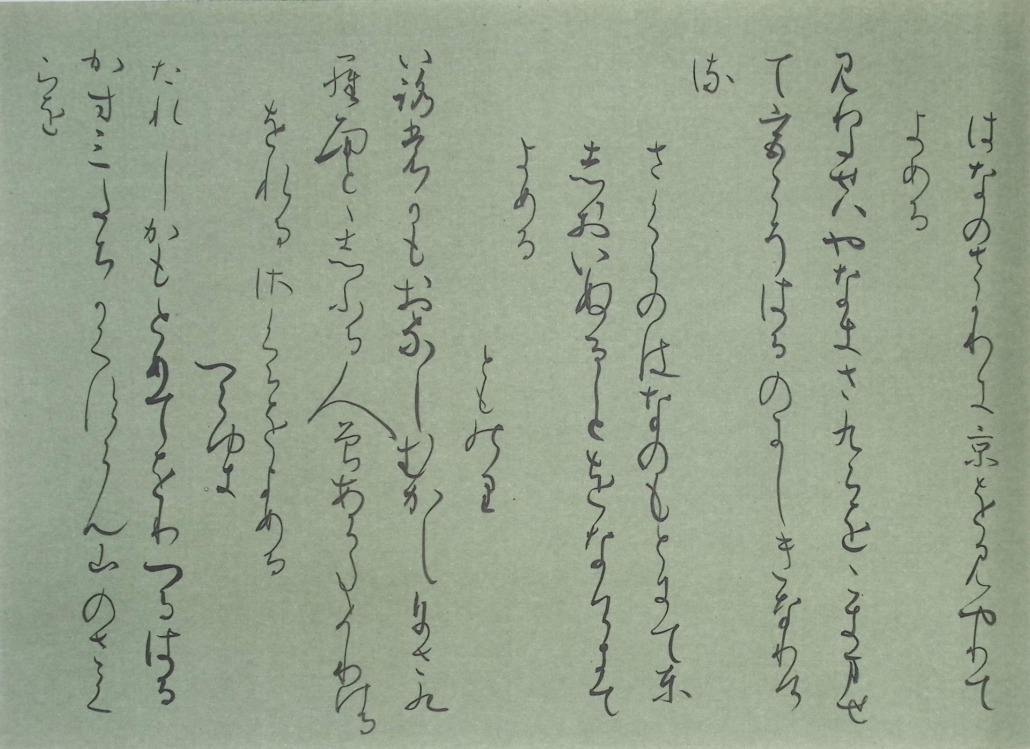 はなのさかりに京を見やりて
よめる
見わたせはやなきさくらをこきませ
て宮こそはるのにしきなりけ
る
さくらのはなのもとにてと
しおいぬることをなけきて
よめる
とものり
いろもかもおなしむかしにさく
らめととしふる人そあらたまりける
をれるさくらをよめる
つらゆき
たれしかもとめてをりつるはる
かすみたちかくすらん山のさく
らを